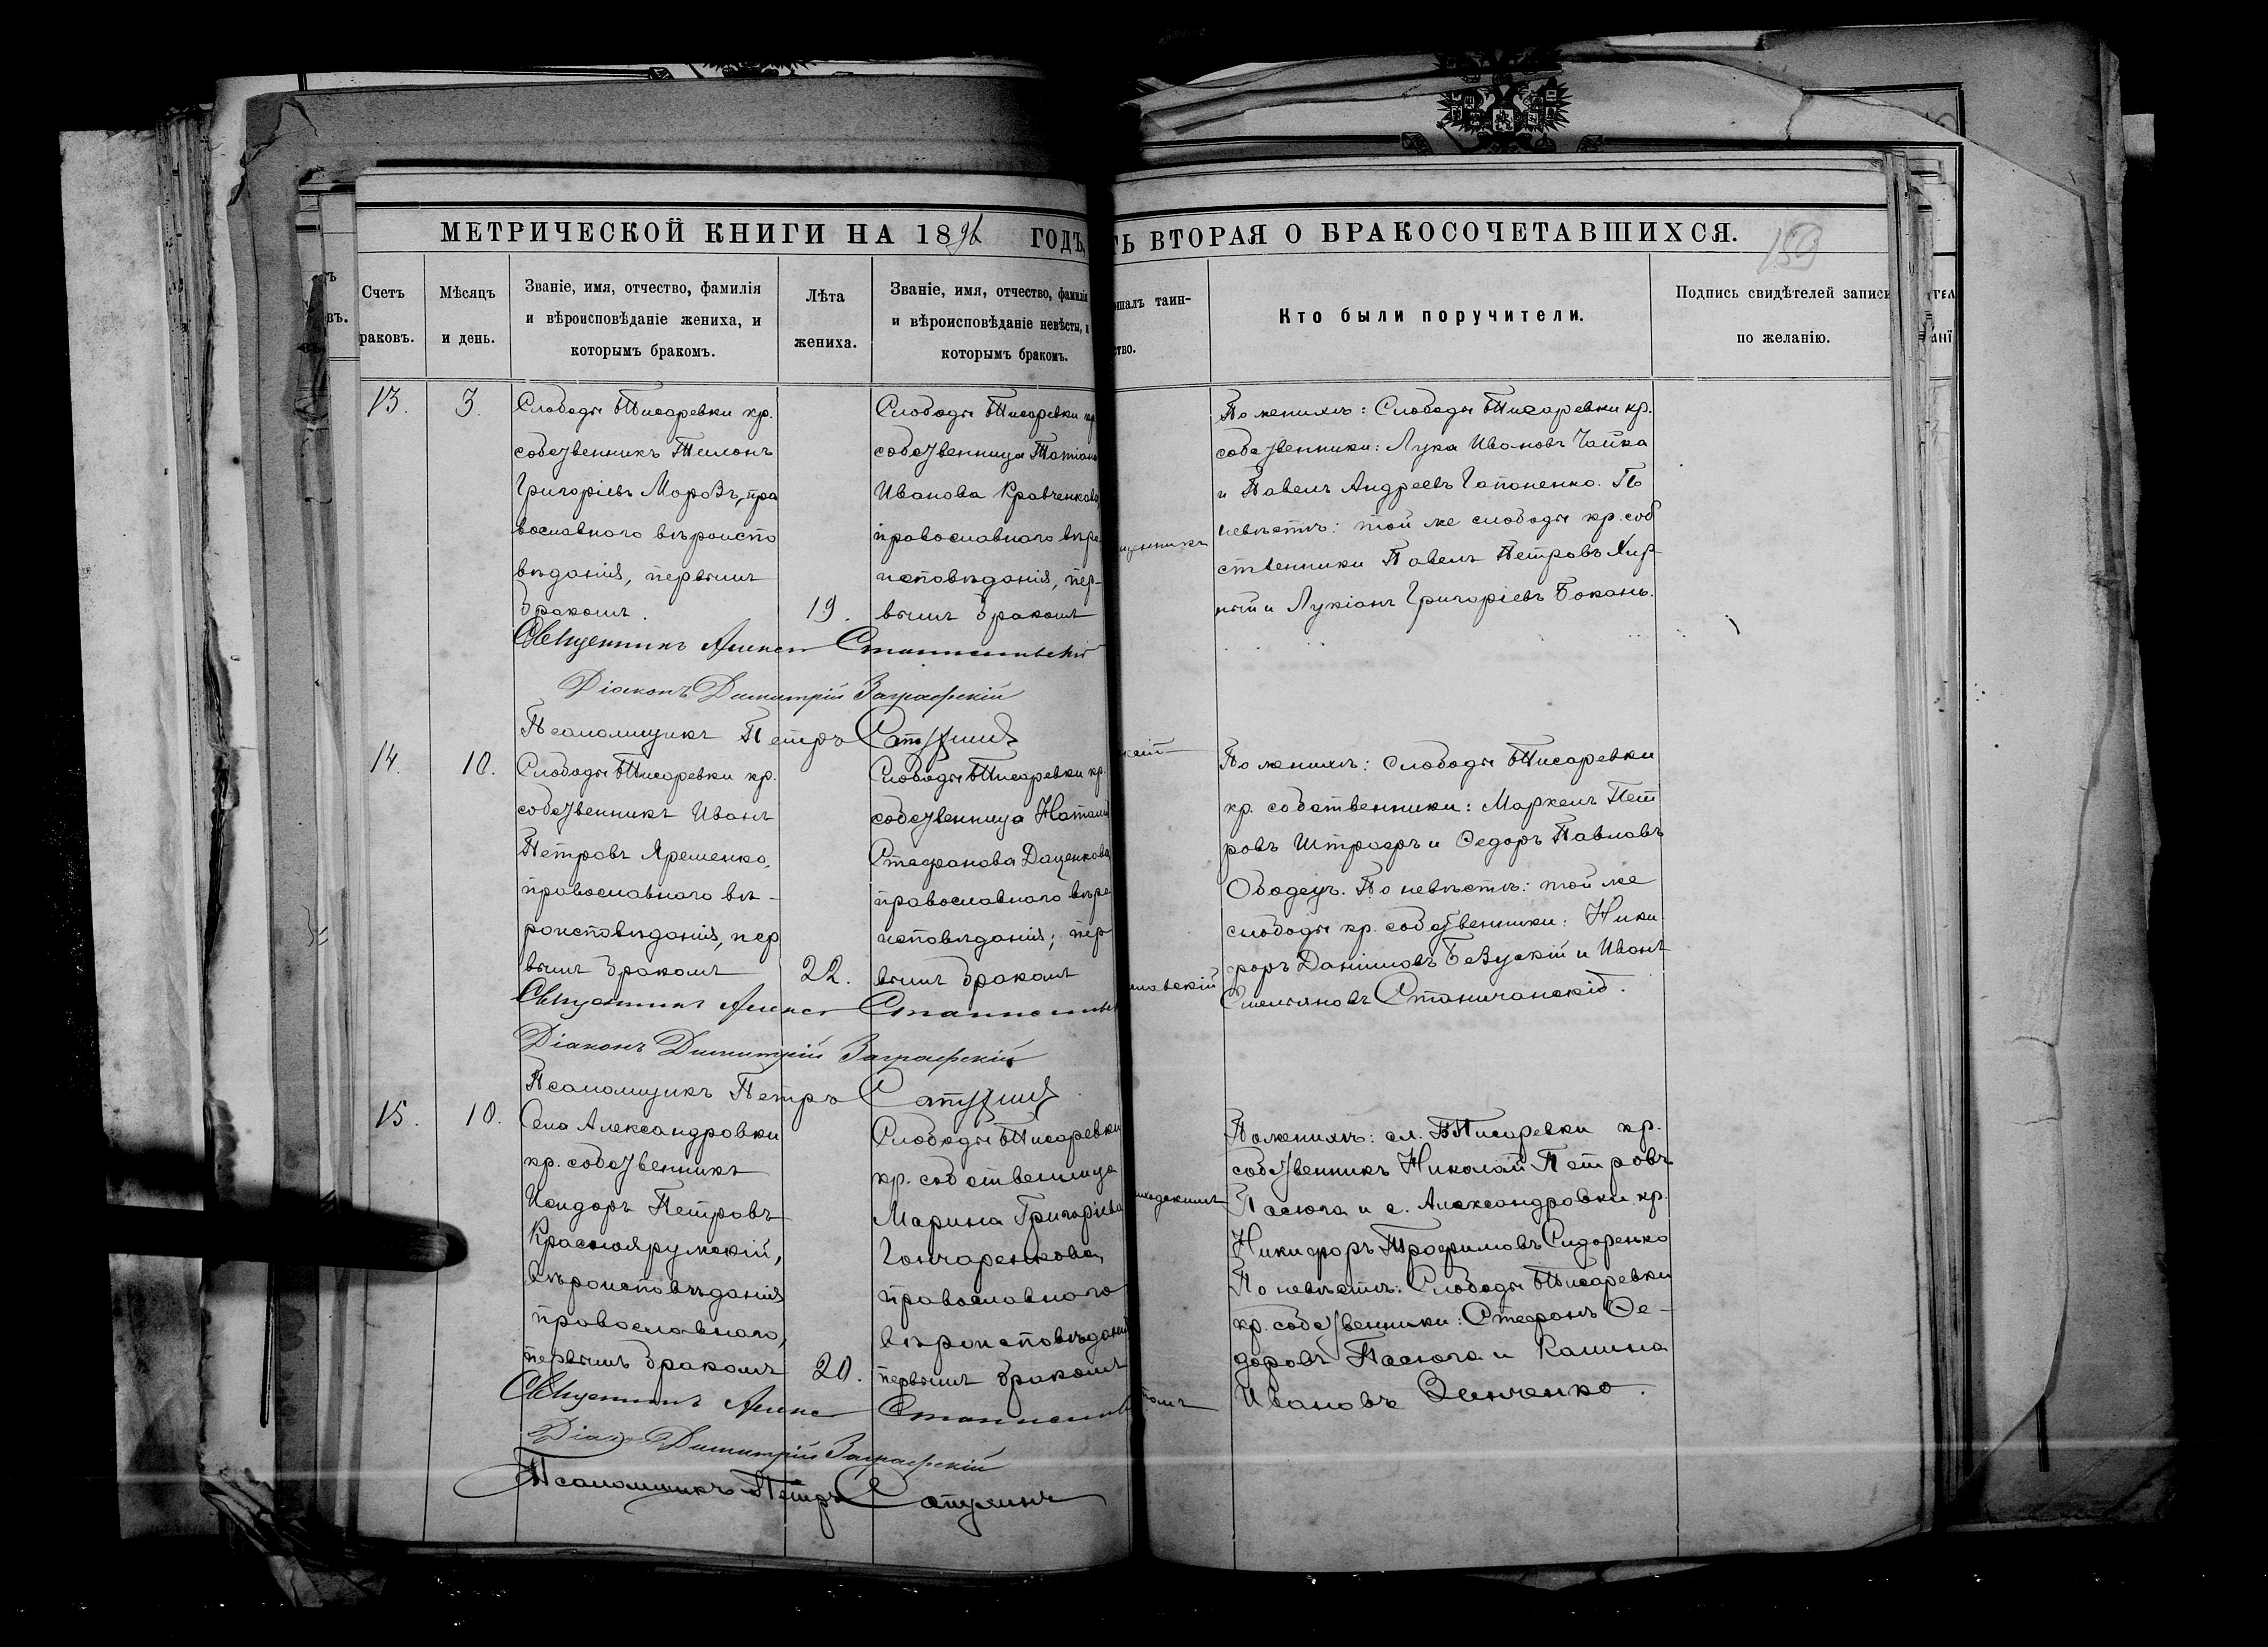 МЕТРИЧЕСКОЙ КНИГИ НА 1896 ГОДЪ,
ТЬ ВТОРАЯ О БРАКОСОЧЕТАВШИХСЯ.
159
Счетъ
раковъ.
Мѣсяцъ
и день.
Званіе, имя, отчество, фамилія
и вѣроисповѣданіе жениха, и
которымъ бракомъ.
Лѣта
жениха.
Званіе, имя, отчество, фамилія
и вѣроисповѣданіе невѣсты, и
которымъ бракомъ.
ршалъ таин-
ство.
Кто были поручители.
Подпись свидѣтелей записи
по желанію.
13.
3.
Слободы Писаревки кр.
собственникъ
Григоріевъ Морозъ, пра
вославнаго вѣроиспо
вѣданія, первымъ
бракомъ.
19.
Слободы Писаревки кр.
собственница Татіана
Иванова Кравченкова,
православнаго вѣро-
исповѣданія, пер-
вымъ бракомъ
По женихѣ: Слободы Писаревки кр.
собственники: Лука Ивановъ Чайка
и Павелъ Андреевъ Гапоненко. По
невѣстѣ: той же слободы кр. соб
ственники Павелъ Петровъ
и Лукіанъ Григоріевъ Бокань.
Священникъ Алексѣй
Діаконъ Димитрій
Псаломщикъ Петръ
14.
10.
Слободы Писаревки кр.
собственникъ Иванъ
Петровъ Яременко,
православнаго вѣ-
роисповѣданія, пер
вымъ бракомъ
22.
Слободы Писаревки кр.
собственница Наталія
Стефанова Даценкова,
православнаго вѣро
исповѣданія, пер
вымъ бракомъ
По женихѣ: Слободы Писаревки
кр. собственники: Маркелъ Пет
ровъ и Ѳедоръ Павловъ
Ободецъ. По невѣстѣ: той же
слободы кр. собственники: Ники
форъ Даніиловъ и Иванъ
Емельяновъ Станичанскій.
Священникъ Алексѣй
Діаконъ Димитрій
Псаломщикъ Петръ
15.
10.
Села Александровки
кр. собственникъ
Исидоръ Петровъ
Краснояружскій,
вѣроисповѣданія
православнаго,
первымъ бракомъ
20.
Слободы Писаревки
кр. собственница
Марина Григоріева
Гончаренкова,
православнаго
вѣроисповѣданія
первымъ бракомъ
По женихѣ: сл. Писаревки кр.
собственникъ Николай Петровъ
Пасюга и с. Александровки кр.
Никифоръ Трофимовъ Сидоренко
По невѣстѣ: Слободы Писаревки
кр. собственники: Стефанъ Ѳе-
доровъ Пасюга и Калина
Ивановъ Зенченко.
Священникъ Алексѣй
Діаконъ Димитрій
Псаломщикъ Петръ